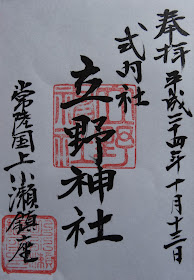 奉拝 平成二十四年十月十三日
式内社
立野神社
常陸国上小瀬鎮座